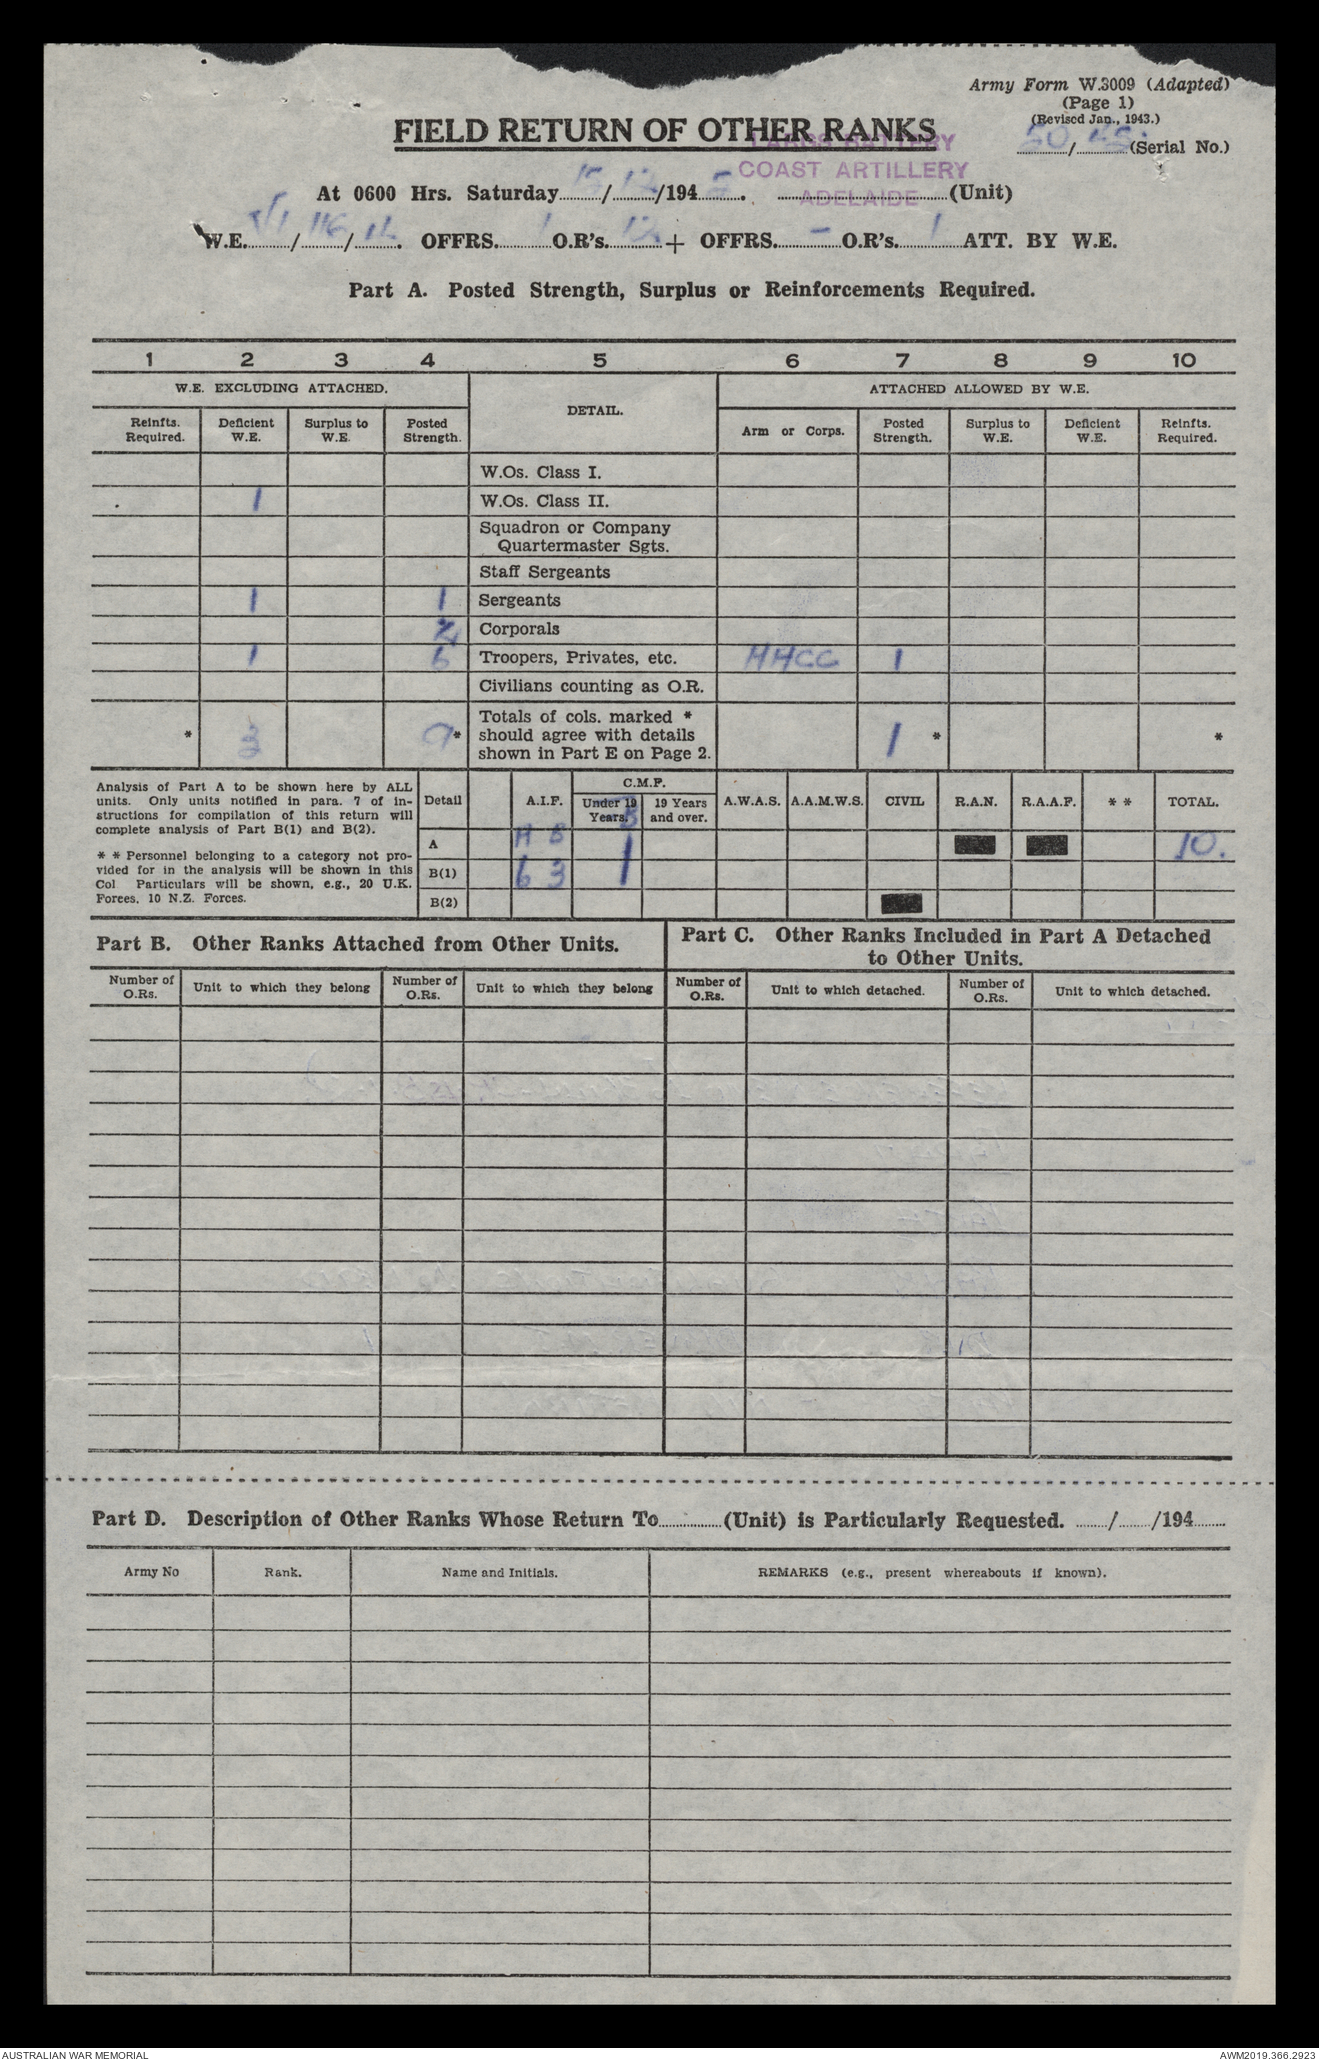 Army Form W.3009 (Adapted)
(Page 1)
(Revised Jan., 1943.)
50/45. (Serial No.)
FIELD RETURN OF OTHER RANKS
LARGS BATTERY
COAST ARTILLERY
ADELAIDE
At 0600 Hrs. Saturday 15/12/1945. (Unit)
W.E. VI/116/ OFFRS. 1 O.R's. 12 + OFFRS. - O.R's. 1 ATT. BY W.E.
Part A. Posted Strength, Surplus or Reinforcements Required.
1 2 3 4 5 6 7 8 9 10
W.E. EXCLUDING ATTACHED. DETAIL. ATTACHED ALLOWED BY W.E.
Reinfts. Required. Deficient W.E. Surplus to W.E. Posted Strength. Arm or Corps. Posted Strength. Surplus to W.E. Deficient W.E. Reinfts. Required.
W.Os. Class I.
1 W.Os. Class II.
Squadron or Company
Quartermaster Sgts.
Staff Sergeants
1 1 Sergeants
2 Corporals
1 6 Troopers, Privates, etc. AACC 1
Civilians counting as O.R.
Totals of cols. marked *
* 3 9* should agree with details 1 * *
shown in Part E on Page 2.
Analysis of Part A to be shown here by ALL
units. Only units notified in para. 7 of in-
structions for compilation of this return will
complete analysis of Part B(1) and B(2).
* * Personnel belonging to a category not pro-
vided for in the analysis will be shown in this
Col Particulars will be shown, e.g., 20 U.K.
Forces, 10 N.Z. Forces.
Detail A.I.F. C.M.F. Under 19 Years. 19 Years and over. A.W.A.S. A.A.M.W.S. CIVIL R.A.N. R.A.A.F. * * TOTAL.
A B B
A 10.
B(1) 6 3 1
B(2)
Part B. Other Ranks Attached from Other Units.
Part C. Other Ranks Included in Part A Detached
to Other Units.
Number of O.Rs. Unit to which they belong Number of O.Rs. Unit to which they belong Number of O.Rs. Unit to which detached. Number of O.Rs. Unit to which detached.
Part D. Description of Other Ranks Whose Return To (Unit) is Particularly Requested. / /194
Army No Rank. Name and Initials. REMARKS (e.g., present whereabouts if known).
AUSTRALIAN WAR MEMORIAL
AWM2019.366.2923